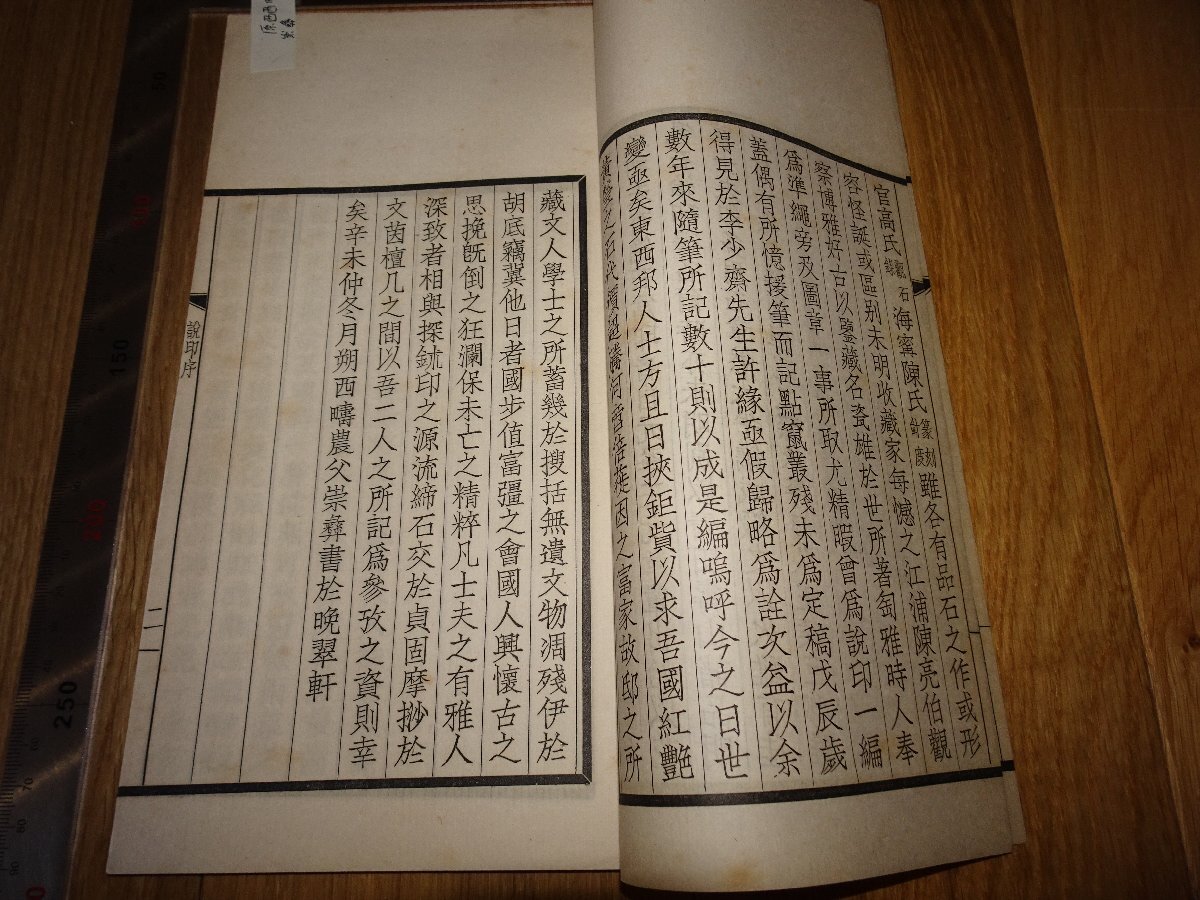 官高氏觀石錄海寗陳氏篆刻鍼度雖各有品石之作或形
容怪誕或區別未明收藏家每憾之江浦陳亮伯觀
察博雅好古以鑒藏名瓷雄於世所著匋雅時人奉
爲準繩旁及圖章一事所取尤精暇曾爲說印一編
蓋偶有所憶援筆而記點竄叢殘未爲定稿戊辰歲
得見於李少齋先生許緣亟假歸略爲詮次益以余
數年來隨筆所記數十則以成是編嗚呼今之日世
變亟矣東西邦人士方且日挾鉅貲以求吾國紅艷
之石
因之富家故邸之所
藏文人學士之所蓄幾於搜括無遺文物凋殘伊於
胡底竊冀他日者國步值富彊之會國人興懷古之
思挽旣倒之狂瀾保未亡之精粹凡士夫之有雅人
深致者相與探鉥印之源流締石交於貞固摩挱於
文茵檀几之間以吾二人之所記爲參攷之資則幸
矣辛未仲冬月朔西疇農父崇彝書於晚翠軒
說印序
二